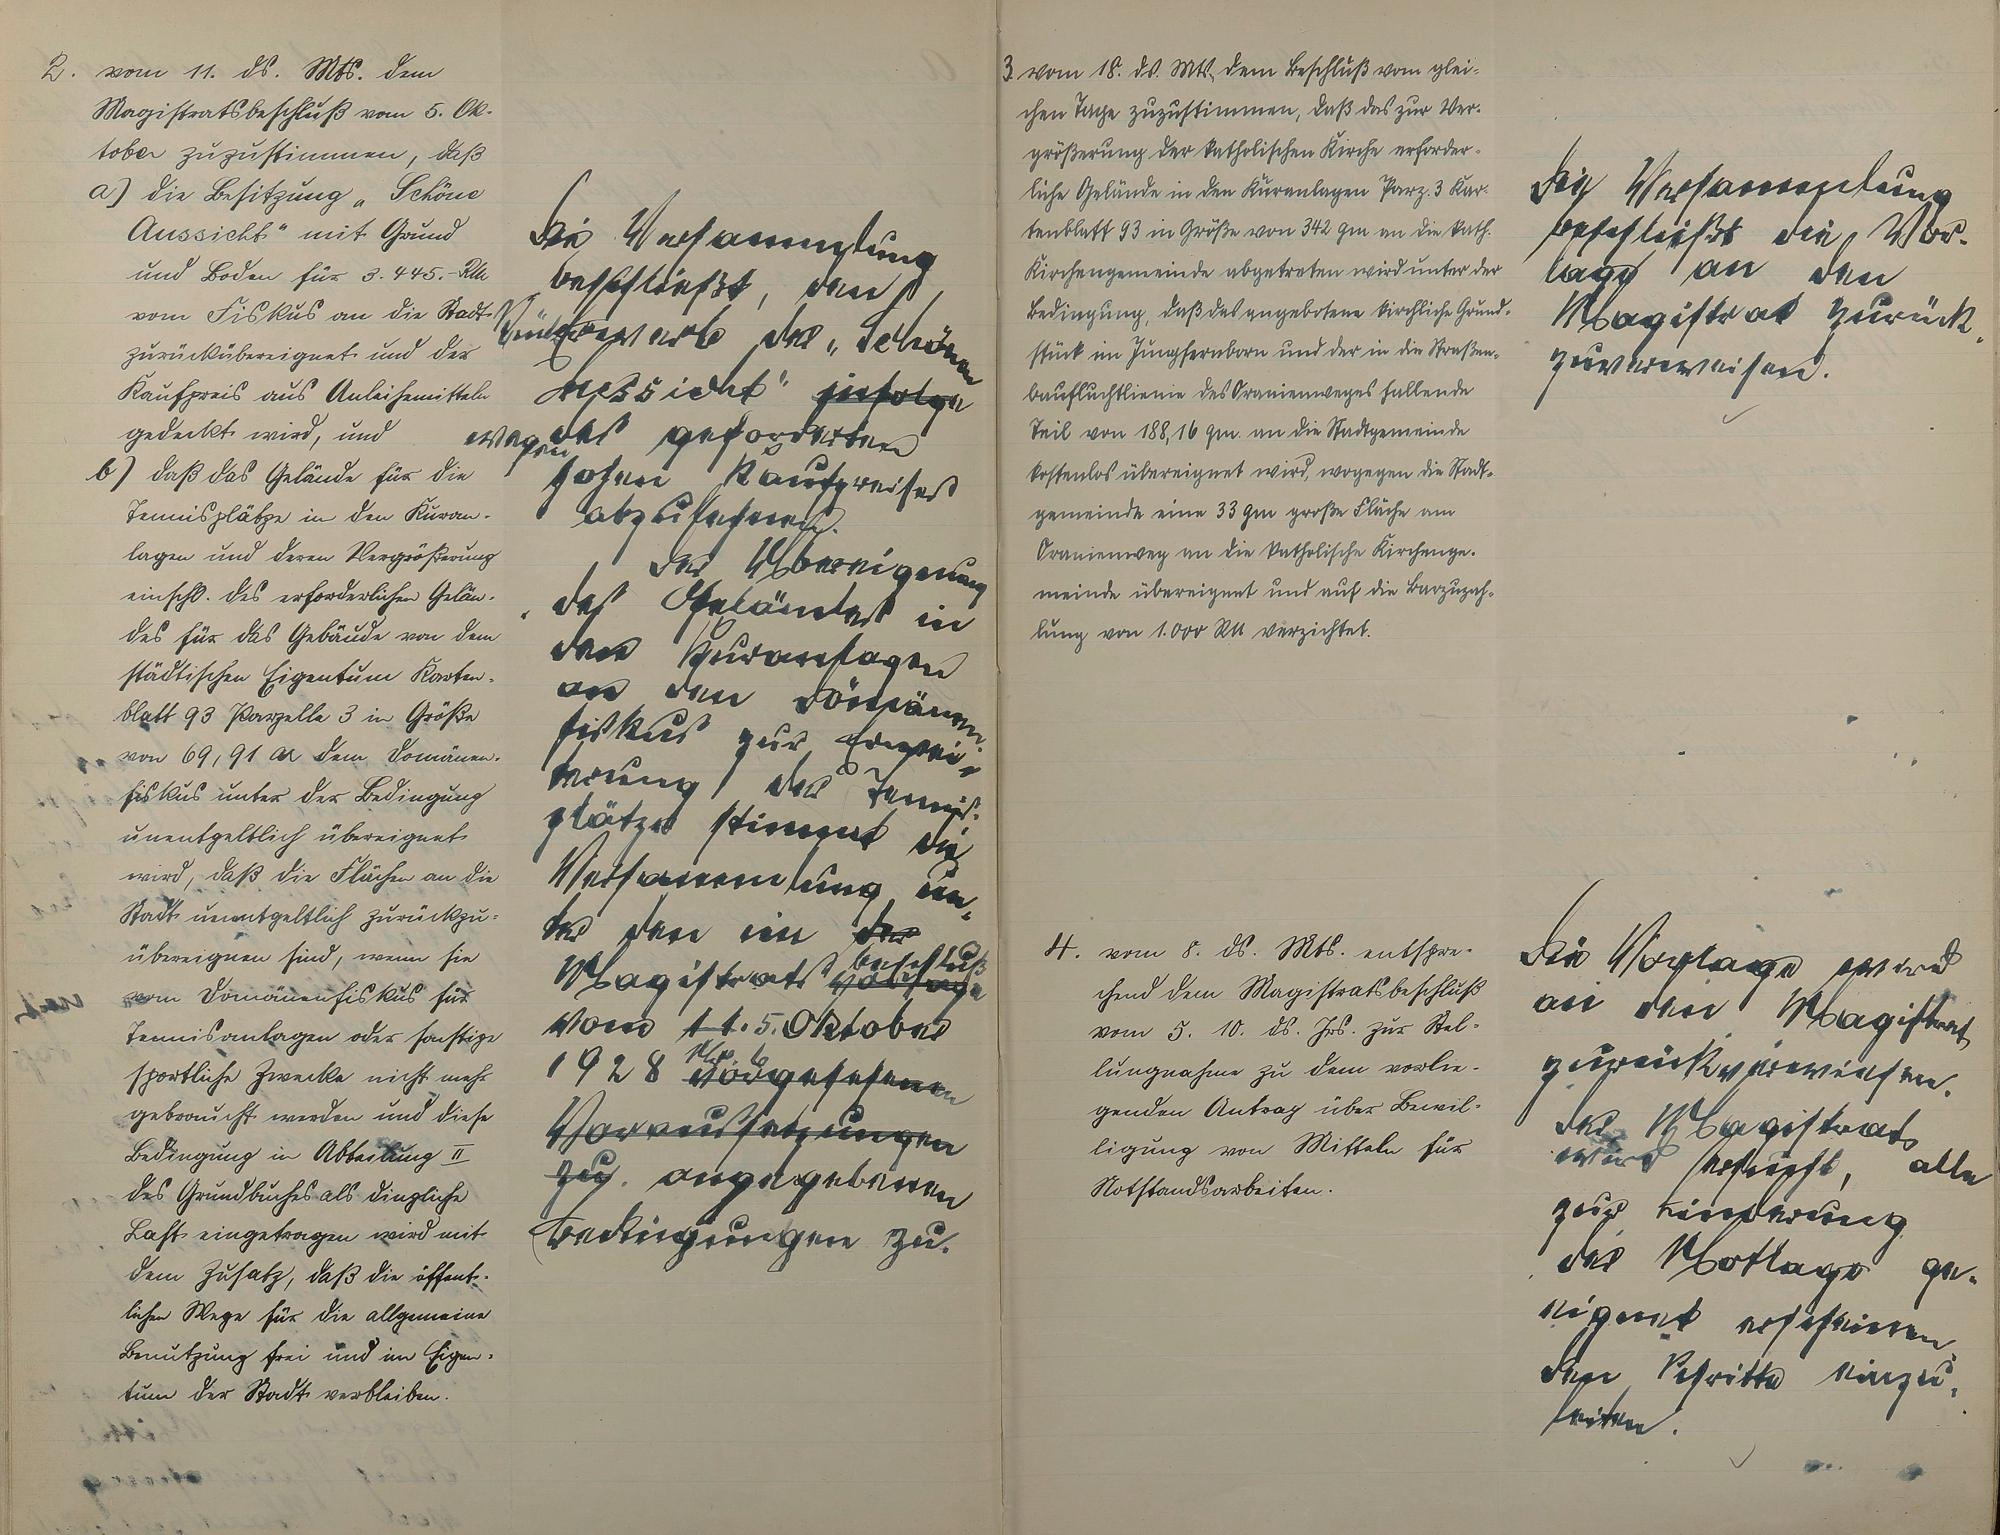 2. vom 11. ds. Mts. dem
Magistratsbeschluß vom 5. Ok-
tober zuzustimmen, daß
a) die Besitzung „Schöne
Aussicht" mit Grund
und Boden für 3.445.- RM
vom Fiskus an die Stadt
zurückübereignet und der
Kaufpreis aus Anleihemitteln
gedeckt wird, und
b) daß das Gelände für die
Tennisplätze in den Kuran-
lagen und deren Vergrößerung
einschl. des erforderlichen Gelän-
des für das Gebäude von dem
städtischen Eigentum Karten-
blatt 93 Parzelle 3 in Größe
von 69,91 ar dem Domänen-
fiskus unter der Bedingung
unentgeltlich übereignet
wird, daß die Flächen an die
Stadt unentgeltlich zurückzu-
übereignen sind, wenn sie
vom Domänenfiskus für
Tennisanlagen oder sonstige
sportliche Zwecke nicht mehr
gebraucht werden und diese
Bedingung in Abteilung II
des Grundbuches als dingliche
Last eingetragen wird mit
dem Zusatz, daß die öffent-
lichen Wege für die allgemeine
Benutzung frei und im Eigen-
tum der Stadt verbleiben.
Die Versammlung
beschließt, den
Rückerwerb der „Schönen
Aussicht" infolge
wegen des geforderten
hohen Kaufpreises
abzulehnen.
Der Übereignung
des Geländes in
den Kuranlagen
an den Domänen-
fiskus zur Erwei-
terung der Tennis-
plätze stimmt die
Versammlung un-
ter den im der
Magistratsbeschluß vorlage
vom 11. 5. Oktober
1928 vorgesehenen
Voraussetzungen
zu. angegebenen
Bedingungen zu.
3. vom 18. ds. Mts. dem Beschluß vom glei-
chen Tage zuzustimmen, daß das zur Ver-
größerung der katholischen Kirche erforder-
liche Gelände in den Kuranlagen Parz. 3 Kar-
tenblatt 93 in Größe von 342 qm an die kath.
Kirchengemeinde abgetreten wird unter der
Bedingung, daß das angebotene kirchliche Grund-
stück im Jungfernborn und der in die Straßen-
baufluchtlienie des Oranienweges fallende
Teil von 188,16 qm. an die Stadtgemeinde
kostenlos übereignet wird, wogegen die Stadt-
gemeinde eine 33 qm große Fläche am
Oranienweg an die katholische Kirchenge-
meinde übereignet und auf die Barzuzah-
lung von 1.000 RM verzichtet.
Die Versammlung
beschließt die Vor-
lage an den
Magistrat zurück-
zuverweisen.
4. vom 8. ds. Mts. entspre-
chend dem Magistratsbeschluß
vom 5. 10. ds. Jrs. zur Stel-
lungnahme zu dem vorlie-
genden Antrag über Bewil-
ligung von Mitteln für
Notstandsarbeiten.
Die Vorlage wird
an den Magistrat
zurückverwiesen.
Der Magistrat
wird ersucht, alle
zur Linderung
der Notlage ge-
eignet erscheinen-
den Schritte einzu-
leiten.